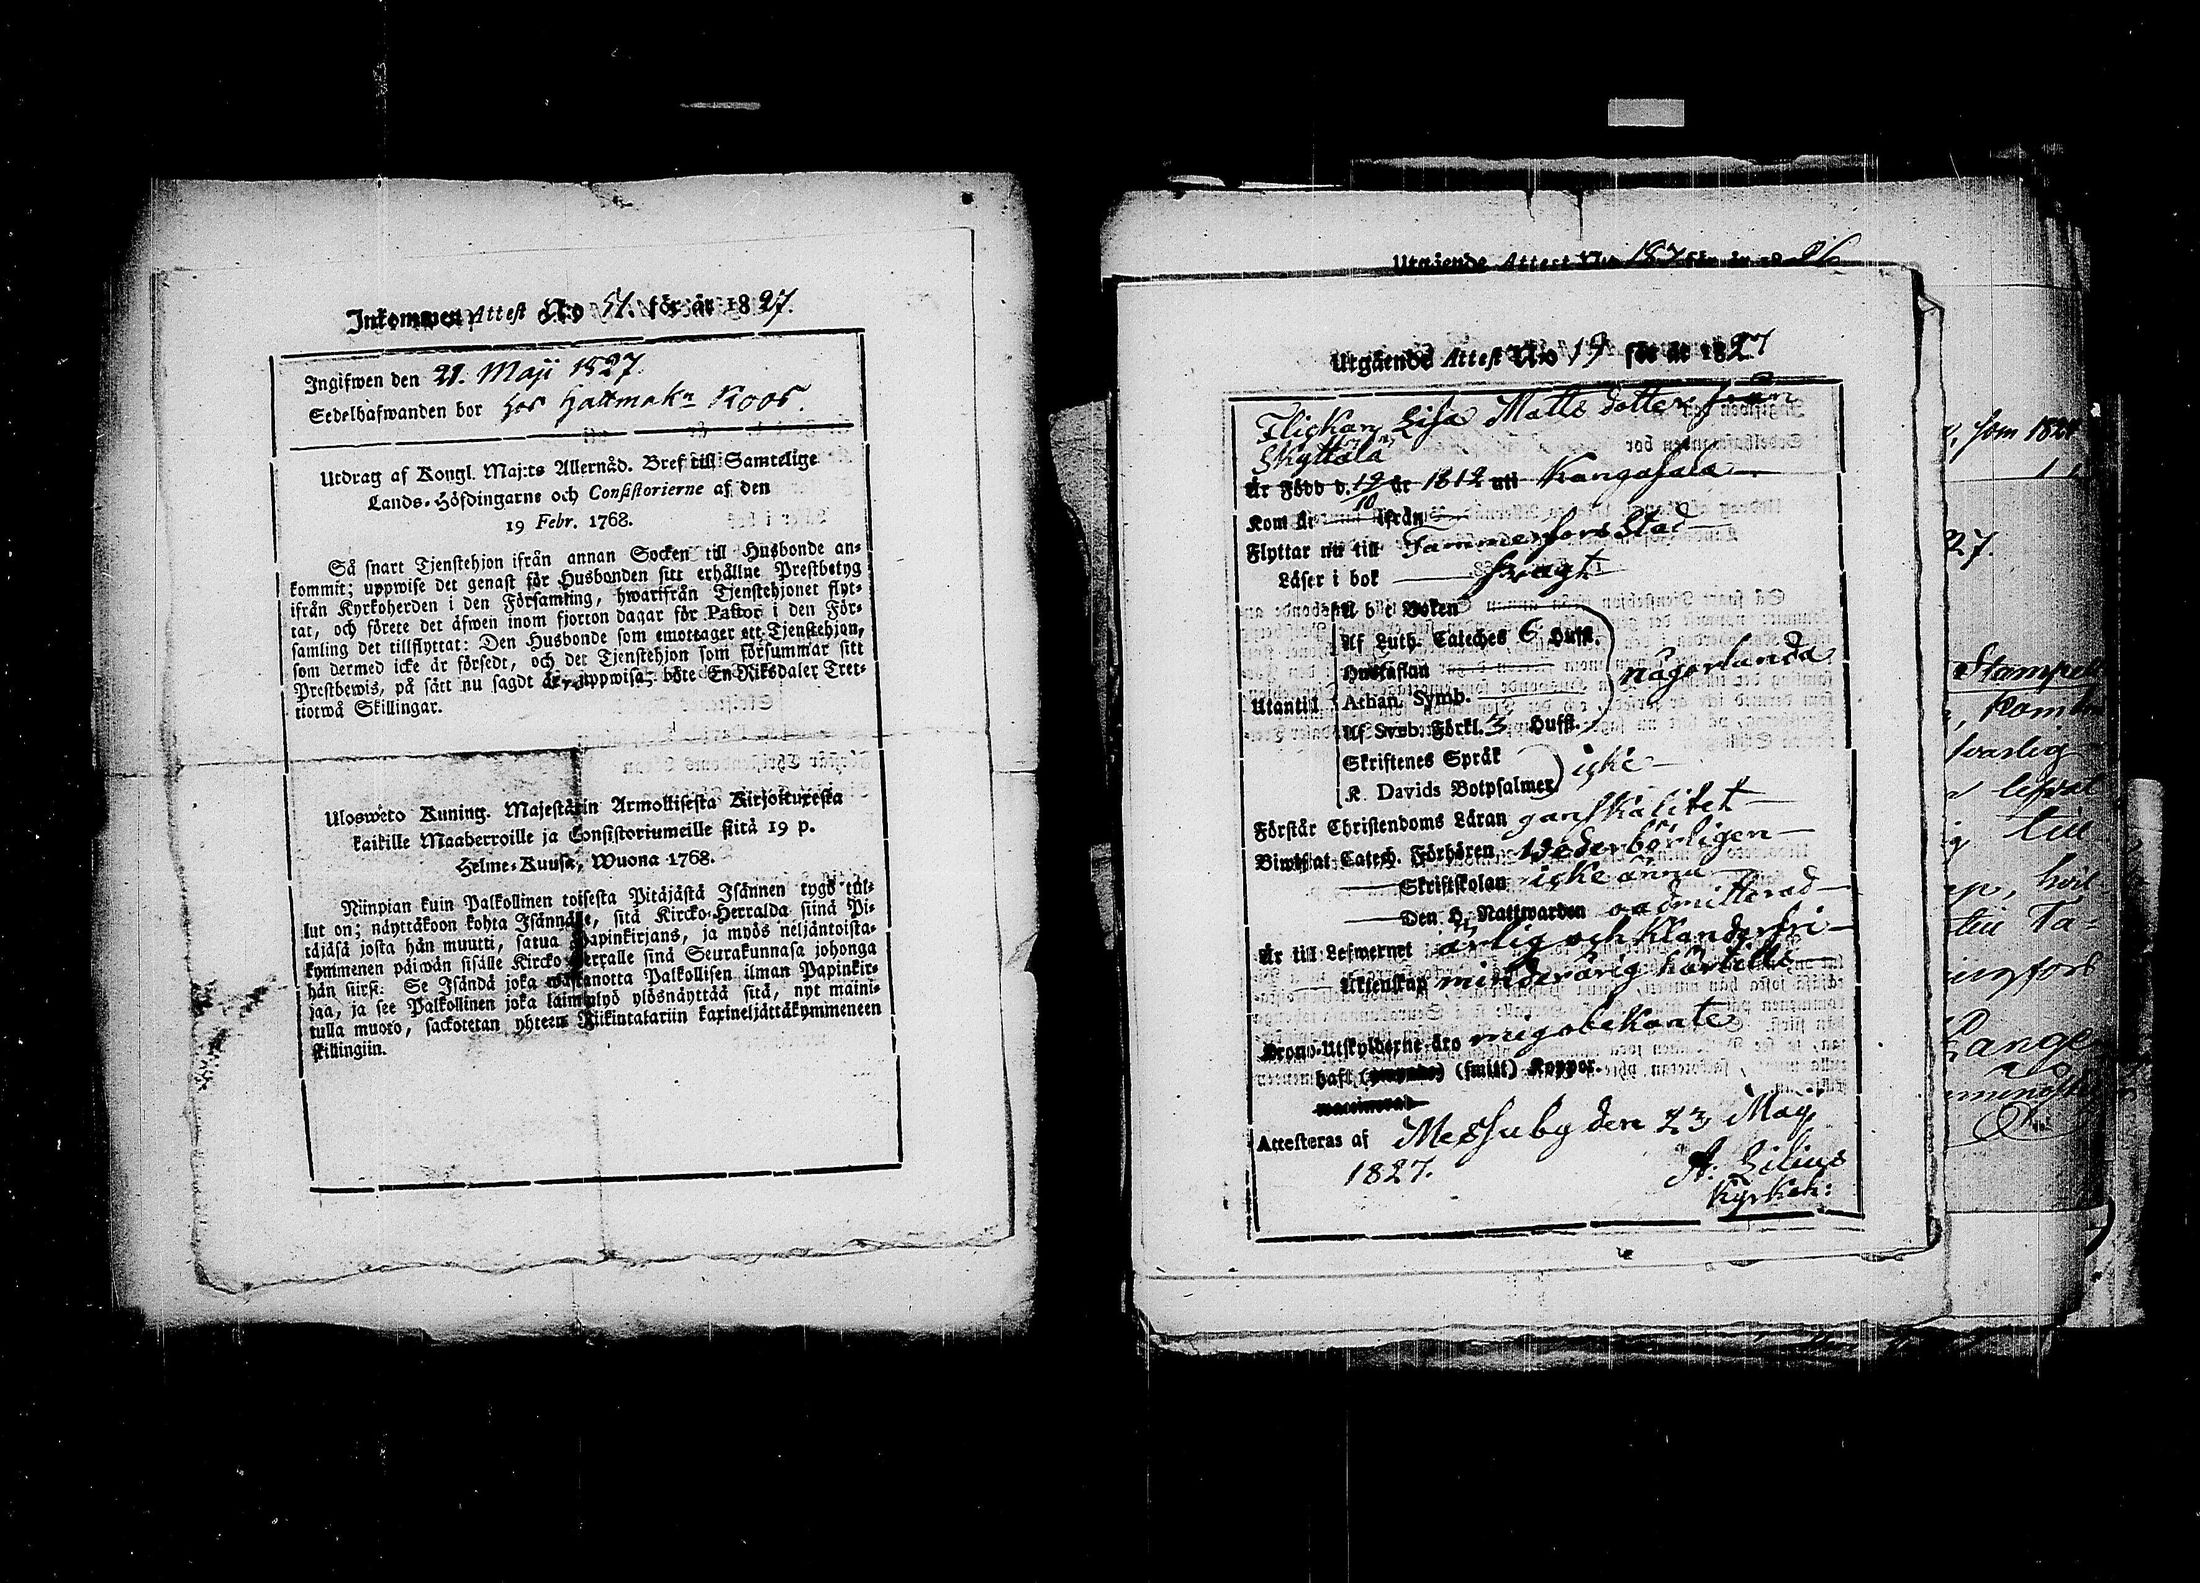 Inkommen Attest No 51. för år 1827.
Ingifwen den 21. Maji 1827.
Sedelhafwanden bor hos Hattmakn Roos.
Utdrag af Kongl. Maj:ts Allernåd. Bref till Samtelige
Lands-Höfdingarne och Consistorierne af den
19 Febr. 1768.
Så snart Tjenstehjon ifrån annan Socken till Husbonde an-
kommit; uppwise det genast för Husbonden sitt erhållne Prestbetyg
ifrån Kyrkoherden i den Församling, hwarifrån Tjenstehjonet flyt-
tat, och förete det äfwen inom fjorton dagar för Pastor i den För-
samling det tillflyttat: Den Husbonde som emottager ett Tjenstehjon,
som dermed icke är försedt, och det Tjenstehjon som försummar sitt
Prestbewis, på sätt nu sagdt är, uppwisa, böte En Riksdaler Tret-
tiotwå Skillingar.
Ulosweto Kuning. Majestätin Armollisesta Kirjoituxesta
kaikille Maaherroille ja Consistoriumeille siitä 19 p.
Helme-Kuusa, Wuona 1768.
Niinpian kuin Palkollinen toisesta Pitäjästä Isännen tygö tul-
lut on; näyttäkoon kohta Isännälle, sitä Kircko-Herralda siinä Pi-
täjäsä josta hän muutti, satua Papinkirjans, ja myös neljäntoista-
kymmenen päiwän sisälle Kircko-Herralle sinä Seurakunnasa johonga
hän siirsi: Se Isändä joka wastanotta Palkollisen ilman Papinkir-
jaa, ja see Palkollinen joka laiminlyö ylösnäyttää sitä, nyt maini-
tulla muoto, sackotetan yhteen Riikintalariin kaxineljättäkymmeneen
skillingiin.
Utgående Attest No 187 för år 1826
Utgående Attest No 19 för år 1827
Flickan Lisa Matts dotter från
Skyttälä
Är Född d. 19/10 år 1812 uti Kangasala
Kom år ifrån
Flyttar nu till Tammerfors Stad
Läser i bok swagt
Utantill
A b c Boken
Af Luth. Cateches 6. Hufst.
Hustaflan
Athan. Symb.
Af Svebe. Förkl. 3 Hufst.
någorlunda
Skriftenes Språk
K. Davids Botpsalmer
icke
Förstår Christendoms Läran ganska litet
Biwistat Catech. Förhören wederbörligen
Skriftskolan icke ännu
Den H. Nattwarden oadmitterad
Är till Lefwernet ärlig och klanderfri
Äktenskap minderårig härtills
Krono-Utskylderne äro mig obekante
haft (smitt) Koppor.
Attesteras af Messuby den 23 Maji
1827.
A: Lilius
Kyrkoh:
, som 182
27.
Stampel
till